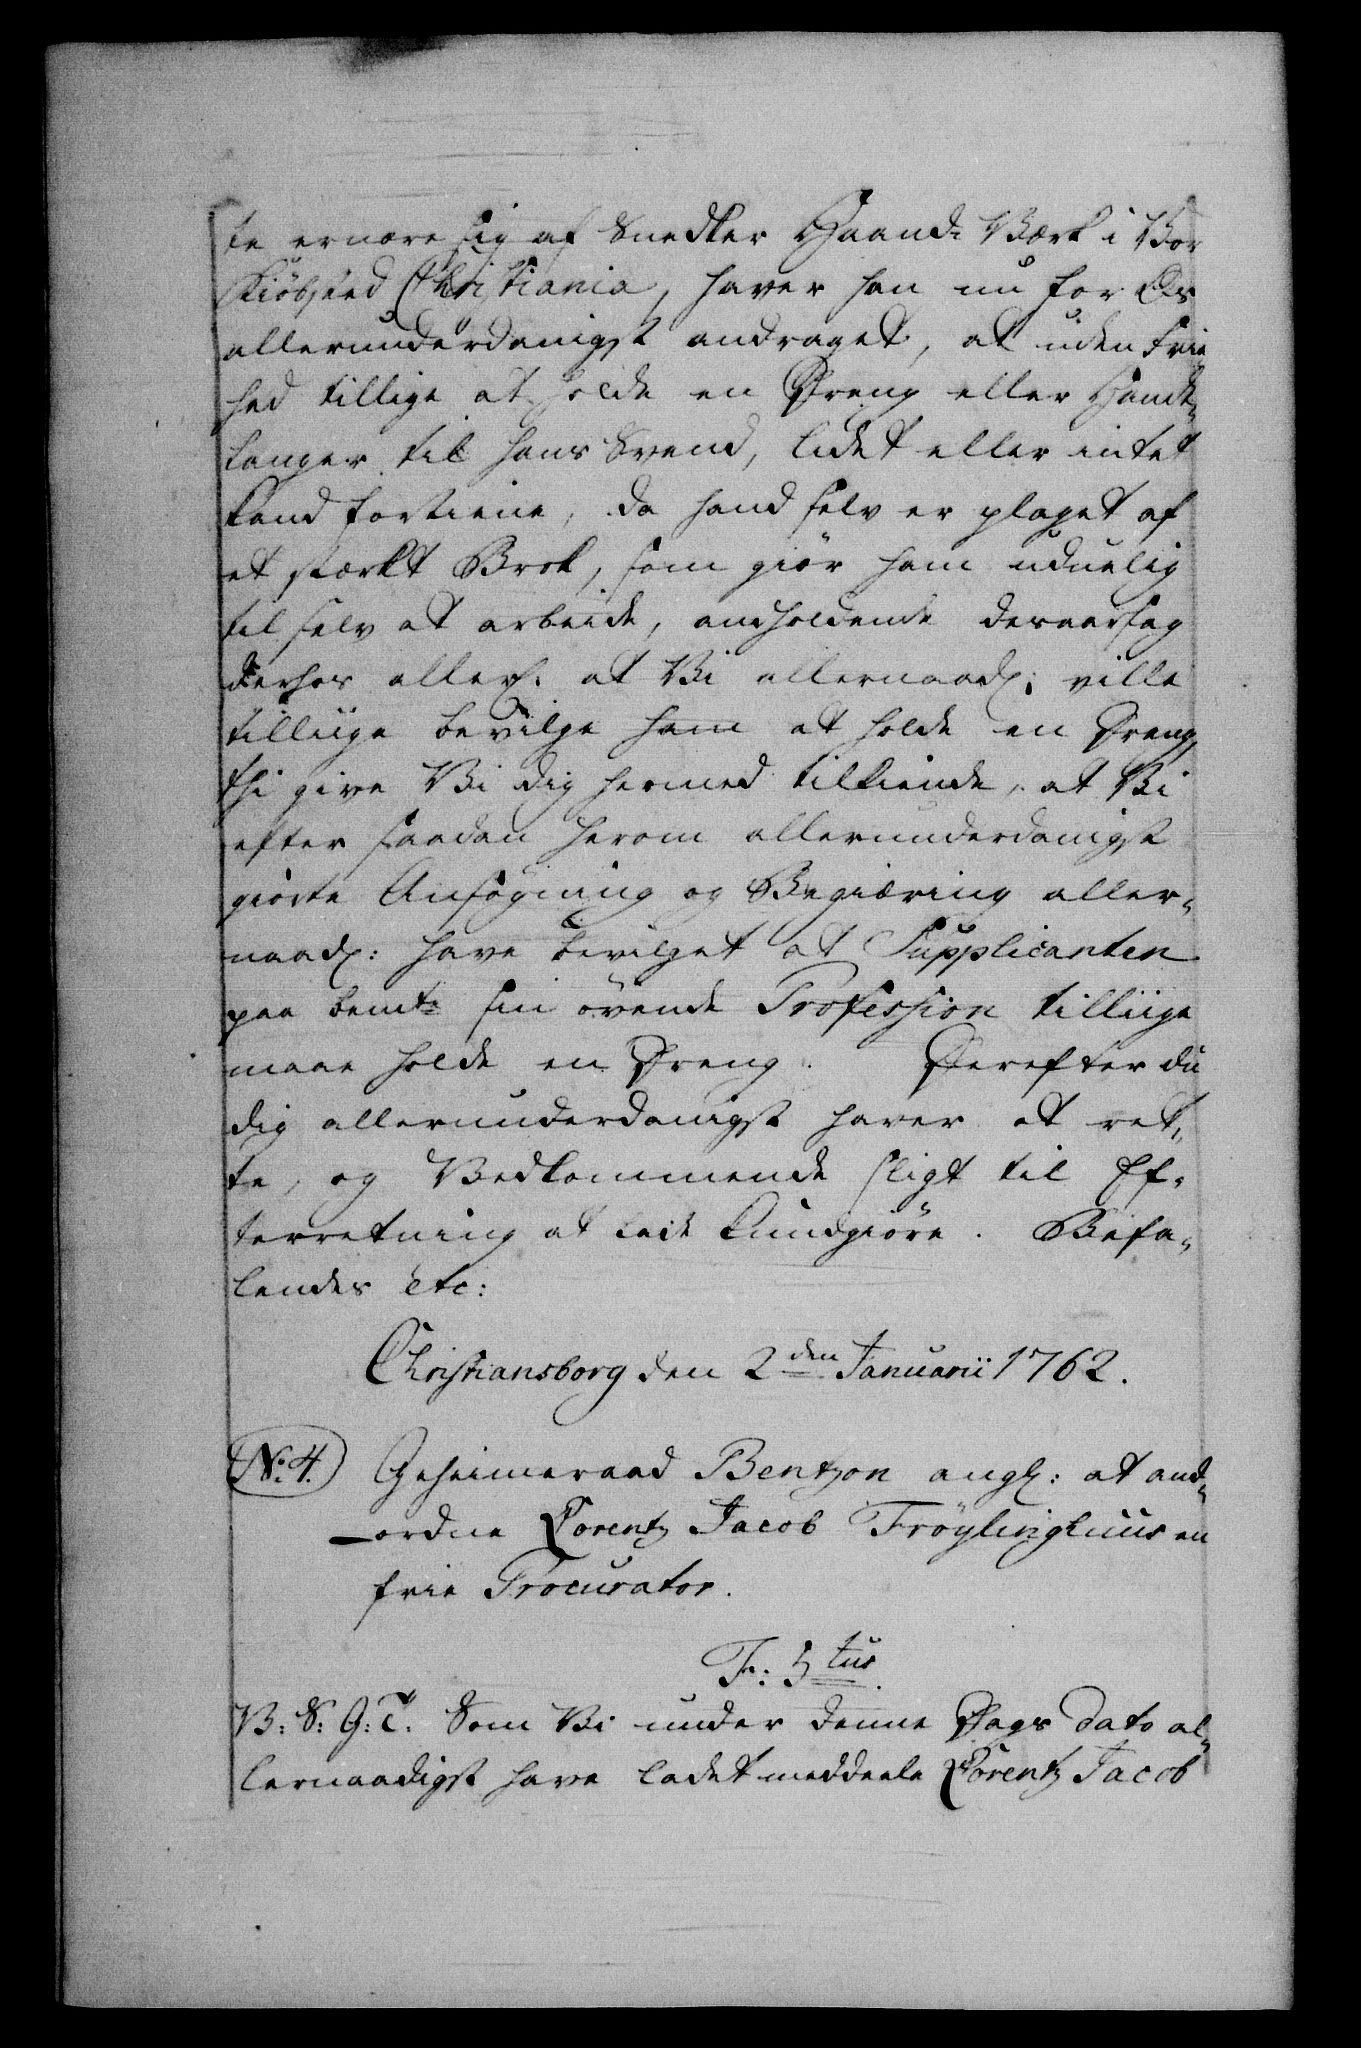 te ernære sig af Snedker Haand-Værk i Vor
Kiöbsted Christiania, haver han nu for Os
allerunderdanigst andraget, at uden Frie-
hed tillige at holde en Dreng eller Hand-
langer til hans Svend, lidet eller intet
kand fortiene, da hand selv er plaget af
et stærkt Brok, som giör ham uduelig
til selv at arbeide, andholdende desaarsag
derhos allerˢ: at Vi allernaadˢ: ville
tilliige bevilge ham at holde en Dreng,
thi give Vi dig hermed tilkiende, at Vi
efter saadan herom allerunderdanigst
giorte Ansögning og Begiæring aller-
naadˢ: have bevilget at Supplicanten
paa bemte sin övende Profession tilliige
maae holde en Dreng. Derefter du
dig allerunderdanigst haver at ret-
te, og Vedkommende sligt til Ef-
terretning at lade kundgiöre. Befa-
lendes etc:
Christiansborg den 2den Januarii 1762.
No: 4. Geheimeraad Bentzon angˢ: at and-
ordne Lorentz Jacob Fröylinghuus en
frie Procurator.
F: 5tus.
V: S: G: T. Som Vi under denne Dags dato al-
lernaadigst have ladet meddeele Lorentz Jacob